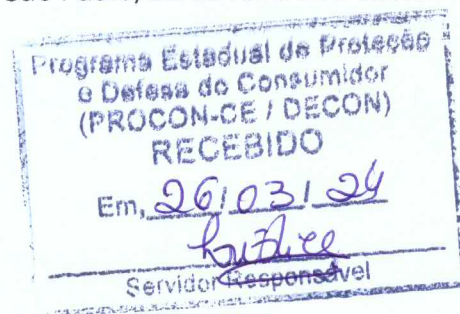 Programa Estadual de Proteção
e Defesa do Consumidor
(PROCON-CE / DECON)
RECEBIDO
Em, 26/03/24
Servidor Responsável